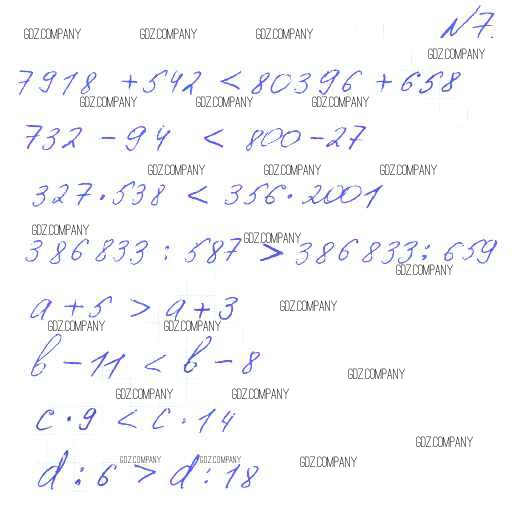 №7.
7918 + 542 < 80396 + 658
732 - 94 < 800 - 27
327 · 538 < 356 · 2001
386833 : 587 > 386833 : 659
a + 5 > a + 3
b - 11 < b - 8
c · 9 < c · 14
d : 6 > d : 18
GDZ.COMPANY GDZ.COMPANY GDZ.COMPANY
GDZ.COMPANY
GDZ.COMPANY GDZ.COMPANY GDZ.COMPANY
GDZ.COMPANY GDZ.COMPANY GDZ.COMPANY
GDZ.COMPANY
GDZ.COMPANY
GDZ.COMPANY
GDZ.COMPANY
GDZ.COMPANY GDZ.COMPANY
GDZ.COMPANY
GDZ.COMPANY GDZ.COMPANY
GDZ.COMPANY
GDZ.COMPANY GDZ.COMPANY GDZ.COMPANY